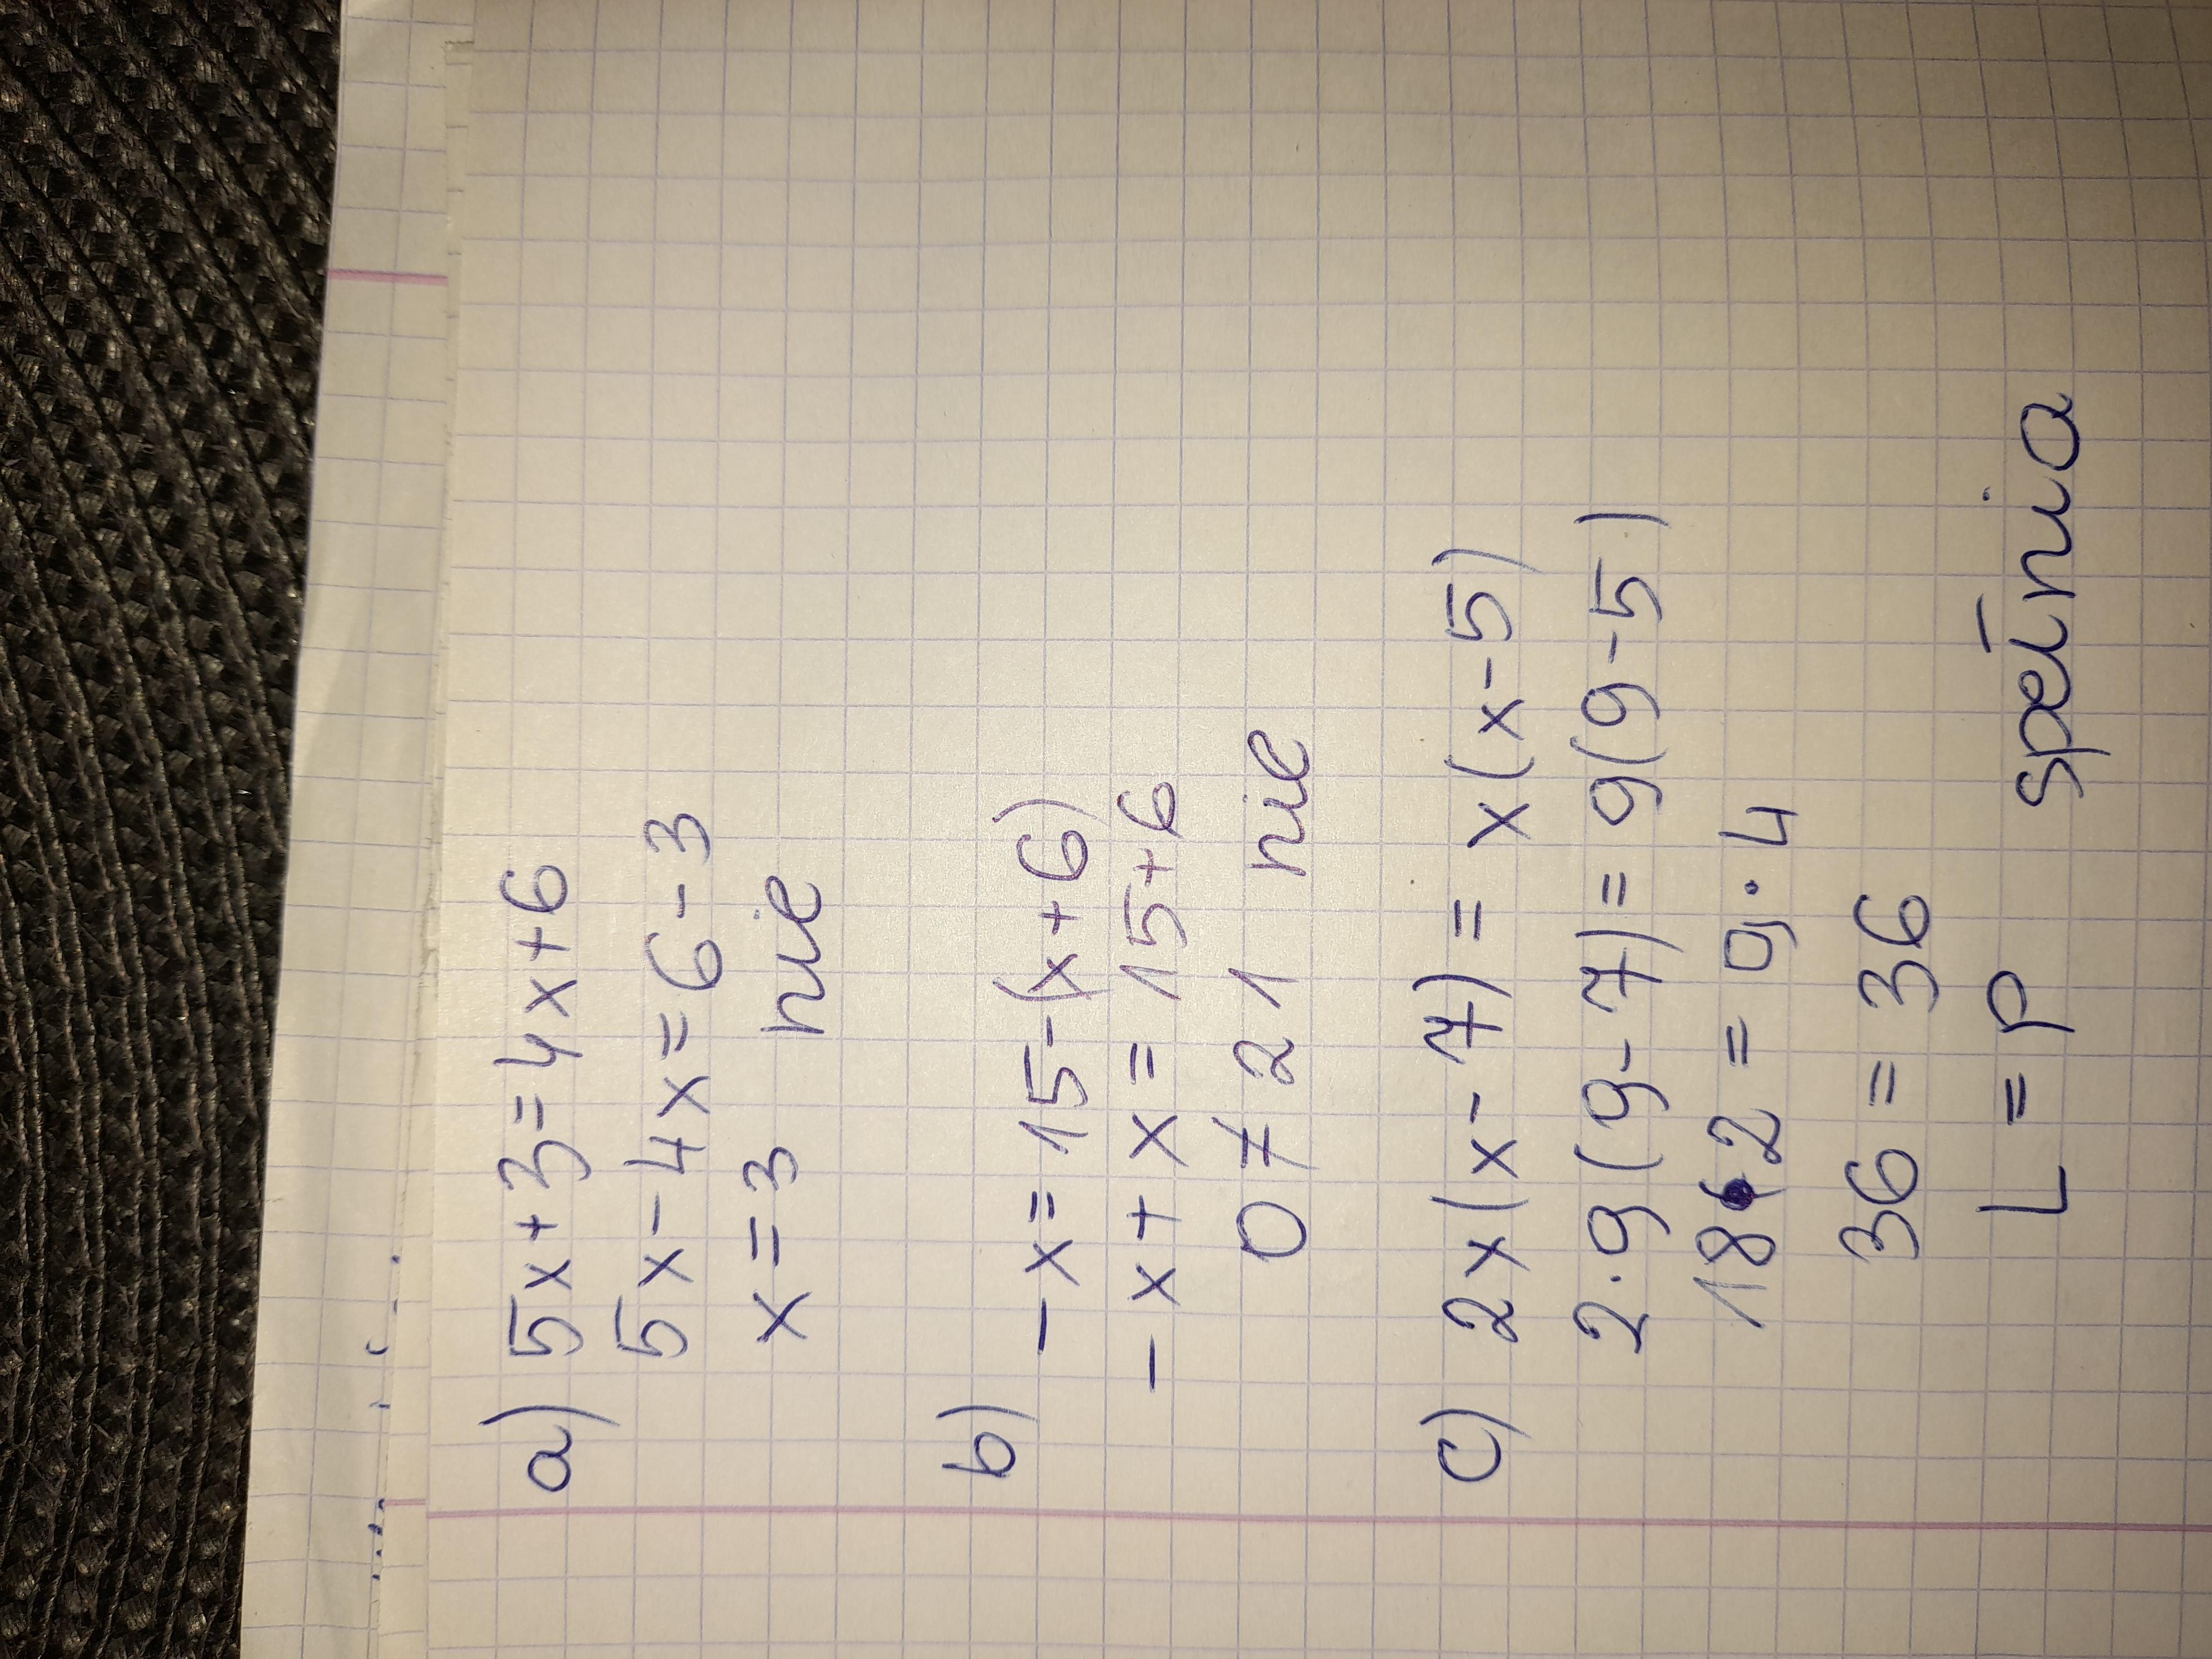 a) 5x+3=4x+6
5x-4x=6-3
x=3 nie
b) -x=15-(x+6)
-x+x=15+6
0≠21 nie
c) 2x(x-7)=x(x-5)
2·9(9-7)=9(9-5)
18·2=9·4
36=36
L=P spełnia